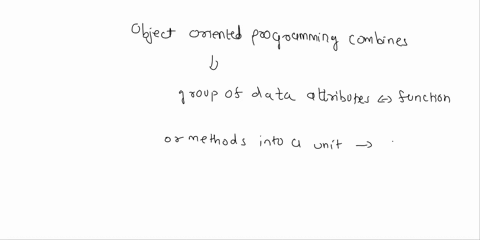 Object oriented programming combines
↓
group of data attributes ↔ function
or methods into a unit →